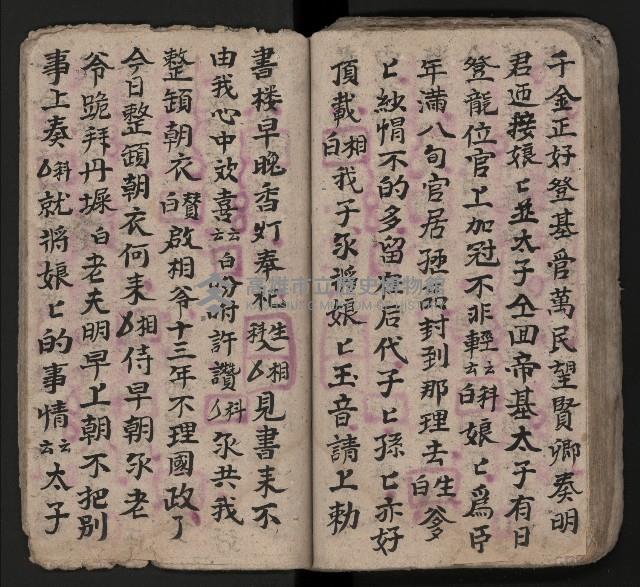 千金正好登基管萬民望賢卿奏明
君迊接娘匕並太子仝回帝基太子有日
登龍位官上加冠不非輕云云白科娘匕爲臣
年滿八旬官居極品封到那理去白生爹
匕紗帽不的多留后代子匕孫匕亦好
頂戴白相我子永謝娘匕玉音請上勅
書楼早晚香灯奉祀生科入相見書来不
由我心中欢喜云云白分付許讚科永共我
整頓朝衣白賛啟相爷十三年不理國政了
今日整頓朝衣何来相侍早朝永老
爷跪拜丹墀白老夫明早上朝不把别
事上奏科就将娘匕的事情云云太子
高雄市立歷史博物館
KAOHSIUNG MUSEUM OF HISTORY